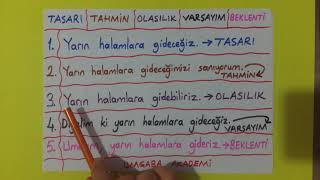 TASARI TAHMİN OLASILIK VARSAYIM BEKLENTİ
1. Yarın halamlara gideceğiz. → TASARI
2. Yarın halamlara gideceğimizi sanıyorum.
TAHMİN
3. Yarın halamlara gidebiliriz. → OLASILIK
4. ki yarın halamlara gideceğiz.
VARSAYIM
5. yarın halamlara gideriz. → BEKLENTİ
AKADEMİ